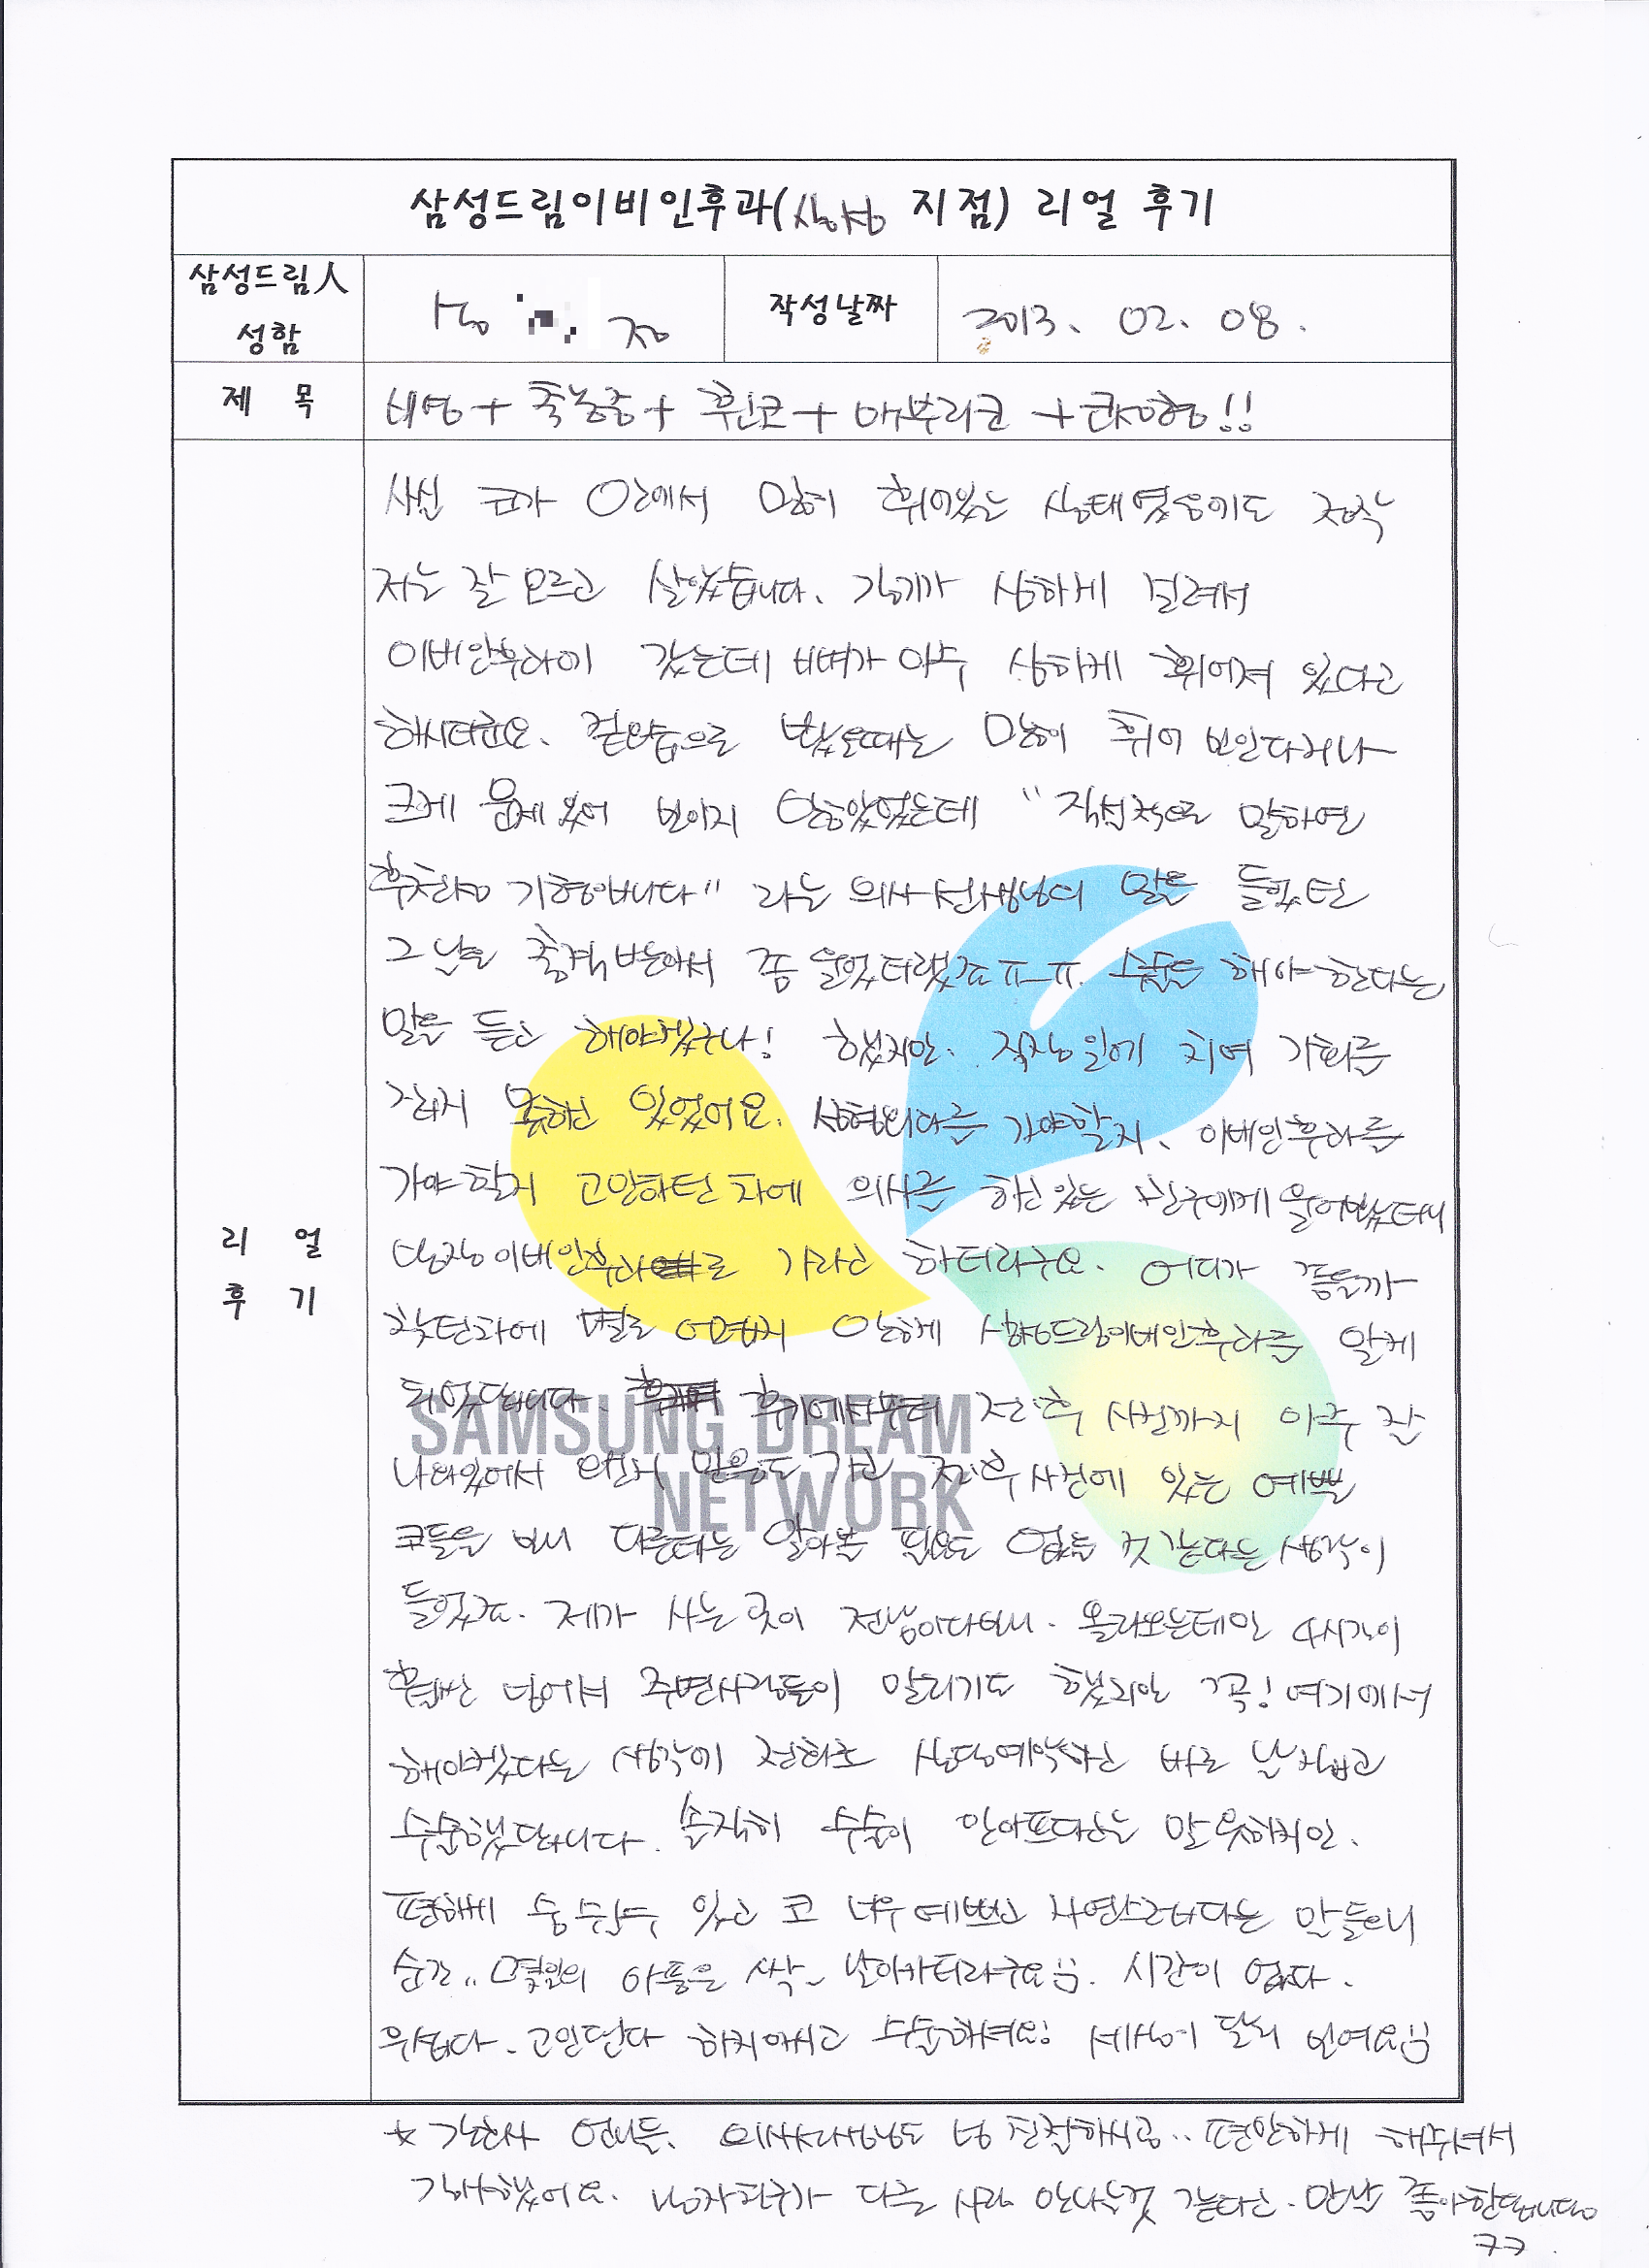 삼성드림이비인후과(삼성 지점) 리얼 후기
삼성드림人
성함
작성날짜 2013. 02. 08.
제 목 비염+축농증+휜코+매부리코+코성형!!
사실 코가 안에서 많이 휘어있는 상태였음에도 정작
저는 잘 모르고 살았습니다. 감기가 심하게 걸려서
이비인후과에 갔는데 비뼈가 아주 심하게 휘어져 있다고
하시더군요. 겉모습으로 봤을때는 많이 휘어 보인다거나
크게 문제 있어 보이지 않았었는데 "직설적으로 말하면
후천적 기형입니다" 라는 의사선생님의 말을 들었던
그 날은 충격받아서 좀 울었더랬죠ㅠ-ㅠ. 수술을 해야 한다는
말을 듣고 해야겠구나! 했지만. 직장일에 치여 기회를
잡지 못하고 있었어요. 성형외과를 가야할지, 이비인후과를
가야 할지 고민하던 차에 의사를 하고있는 친구에게 물어봤더니
당장 이비인후과로 가라고 하더라구요. 어디가 좋을까
찾던차에 별로 어렵지 않게 삼성드림이비인후과를 알게
되었답니다. 후기에서부터 전·후 사진까지 아주 잘
나와있어서 왠지 믿음도 가고 전·후 사진에 있는 예쁜
코들을 보니 다른데는 알아볼 필요도 없을 것 같다는 생각이
들었죠. 제가 사는 곳이 전남이다보니. 올라오는데만 4시간이
훨씬 넘어서 주변사람들이 말리기도 했지만 꼭! 여기에서
해야겠다는 생각에 전화로 상담예약하고 바로 날 잡고
수술했답니다. 솔직히 수술이 안아프다고는 말 못하지만.
편하게 숨 쉴수 있고 코 너무 예쁘고 자연스럽다는 말 들으니
순간.. 몇일의 아픔은 싹~ 날아가더라구요. 시간이 없다.
무섭다. 고민된다 하지마시고 수술하세요! 세상이 달라 보여요
★ 간호사 언니들, 의사선생님도 넘 친절하시공.. 편안하게 해주셔서
감사했어요. 남자친구가 다른 사람 만나는것 같다고. 만날 좋아한답니당
ㅋㅋ